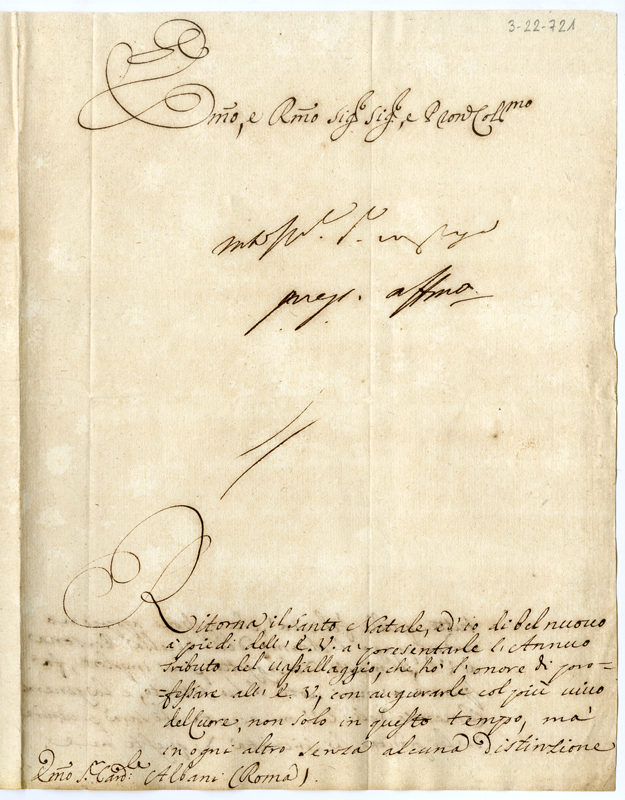 3-22-721
Emõ, e Rmõ Sig.r Sig.r, e Pron Coll.mo
affmo
Ritorna il Santo Natale, ed io di bel nuovo
a' piedi dell' E. V. a' presentarle l'Annuo
tributo del vassallaggio, che hò l'onore di pro-
fessare all' E. V., con augurarle col più vivo
del Cuore, non solo in questo tempo, mà
in ogni altro senza alcuna Distinzione
Rmõ S.r Card.le Albani (Roma).